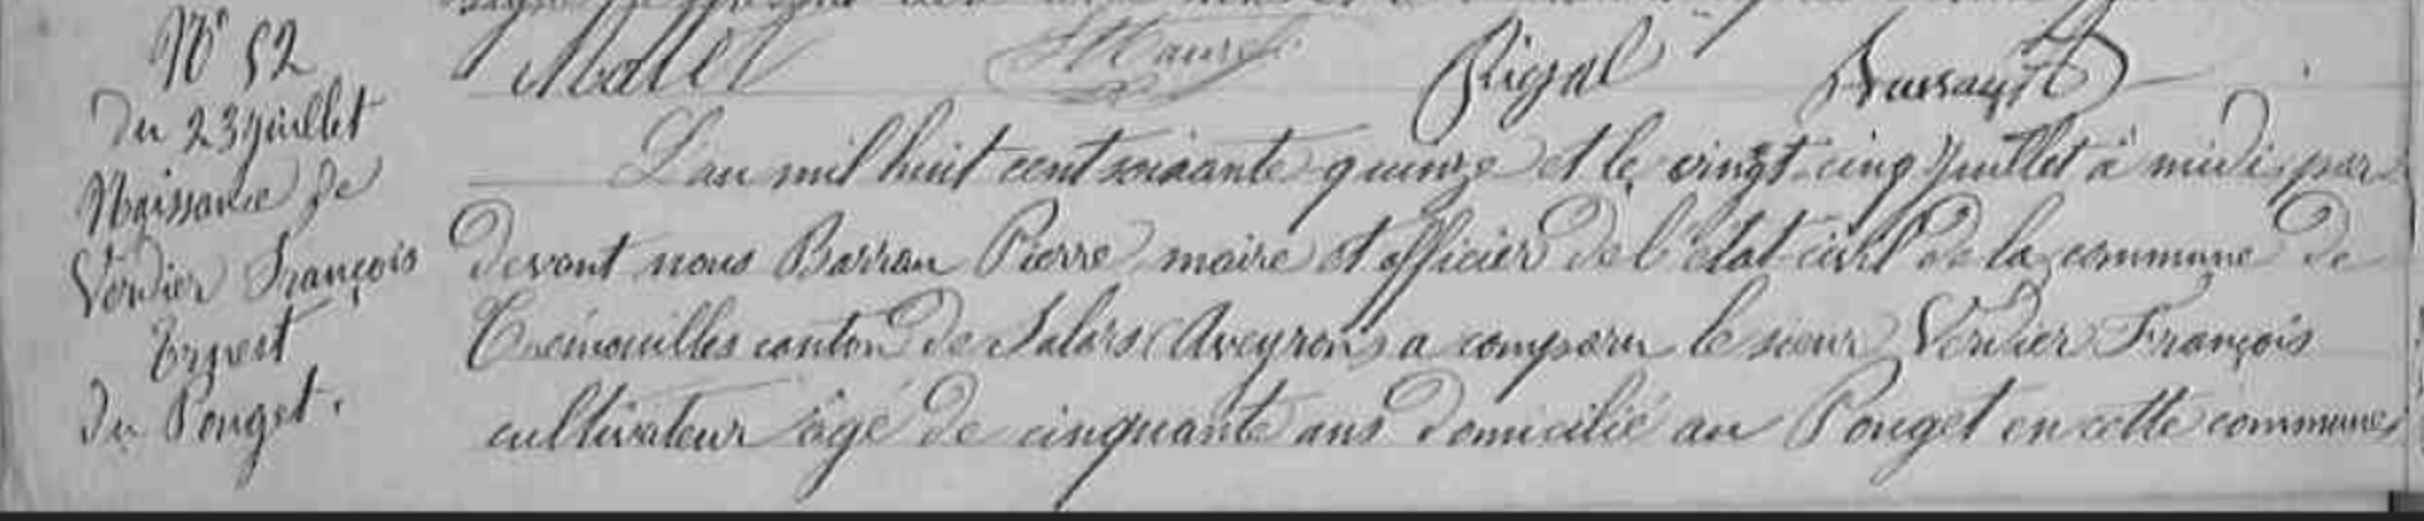 N° 52
Du 23 juillet
Naissance de
Verdier François
Ernest
Du Pouget.
Malet Maurel Rigal
L'an mil huit cent soixante quinze et le vingt-cinq juillet à midi, par
devant nous Barrau Pierre maire et officier de l'état civil de la commune de
Trémouilles canton de Salars (Aveyron) a comparu le sieur Verdier François
cultivateur âgé de cinquante ans domicilié au Pouget en cette commune,